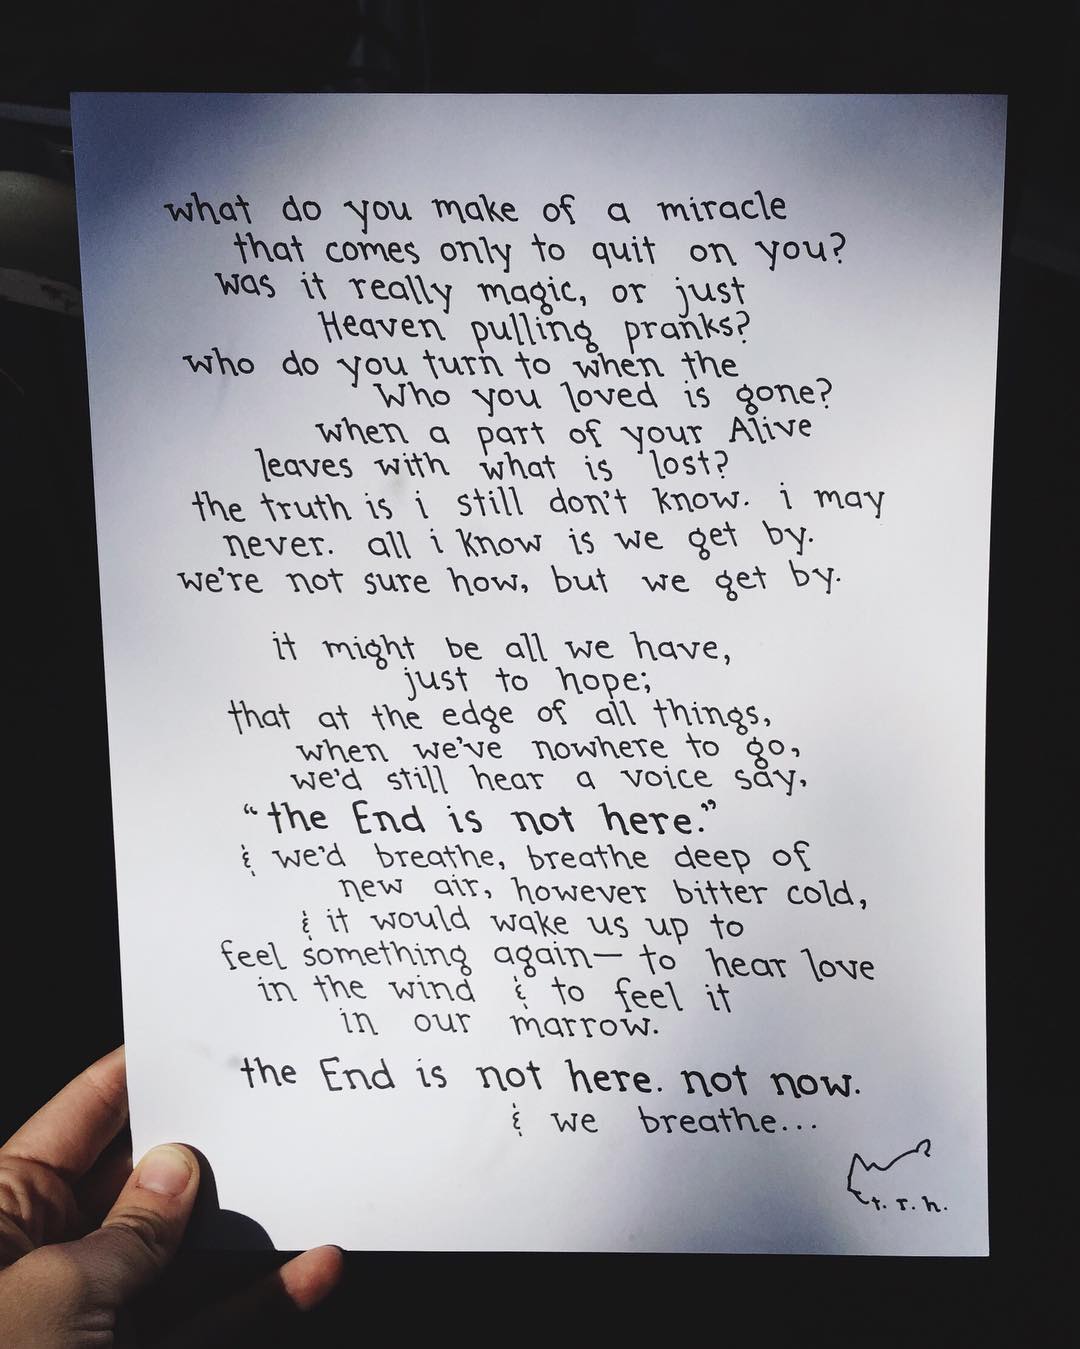 what do you make of a miracle
that comes only to quit on you?
was it really magic, or just
Heaven pulling pranks?
who do you turn to when the
Who you loved is gone?
when a part of your Alive
leaves with what is lost?
the truth is i still don't know. i may
never. all i know is we get by.
we're not sure how, but we get by.
it might be all we have,
just to hope;
that at the edge of all things,
when we've nowhere to go,
we'd still hear a voice say,
"the End is not here."
& we'd breathe, breathe deep of
new air, however bitter cold,
& it would wake us up to
feel something again— to hear love
in the wind & to feel it
in our marrow.
the End is not here. not now.
& we breathe...
t. r. h.